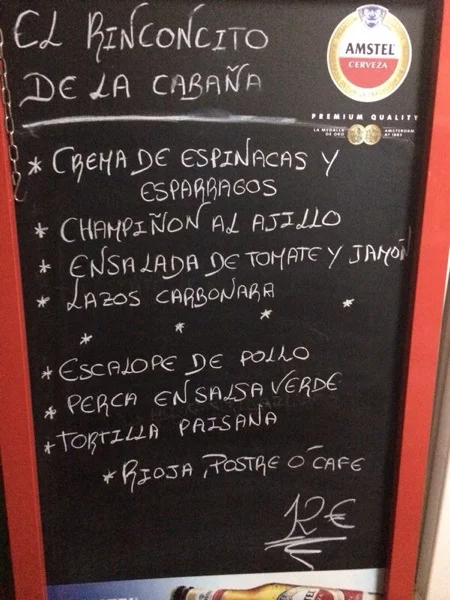 EL RINCONCITO
DE LA CABAÑA
AMSTEL
CERVEZA
PREMIUM QUALITY
LA MEDALLA
DE ORO
AMSTERDAM
AÑO 1883
* CREMA DE ESPINACAS Y
ESPARRAGOS
* CHAMPIÑON AL AJILLO
* ENSALADA DE TOMATE Y JAMÓN
* LAZOS CARBONARA
* * * *
* ESCALOPE DE POLLO
* PERCA EN SALSA VERDE
* TORTILLA PAISANA
* RIOJA, POSTRE O CAFE
12€